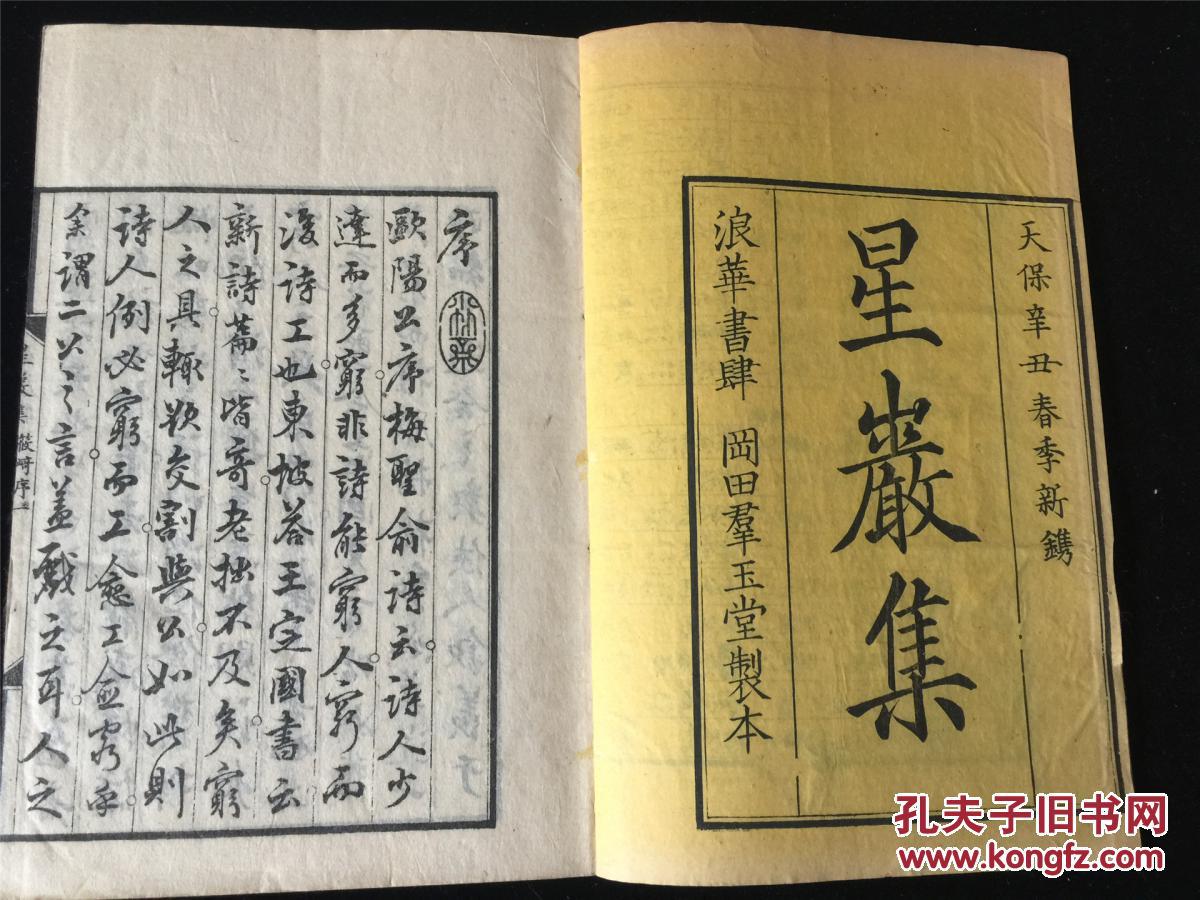 天保辛丑春季新鐫
星巖集
浪華書肆 岡田羣玉堂製本
序
歐陽公序梅聖俞詩云詩人少
達而多窮非詩能窮人窮而
後詩工也東坡答王定國書云
新詩篇〻皆奇老拙不及矣窮
人之具輒欲交割與公如此則
詩人例必窮而工愈工愈窮乎
余謂二公之言蓋戲之耳人之
星巖集 序
孔夫子旧书网
www.kongfz.com